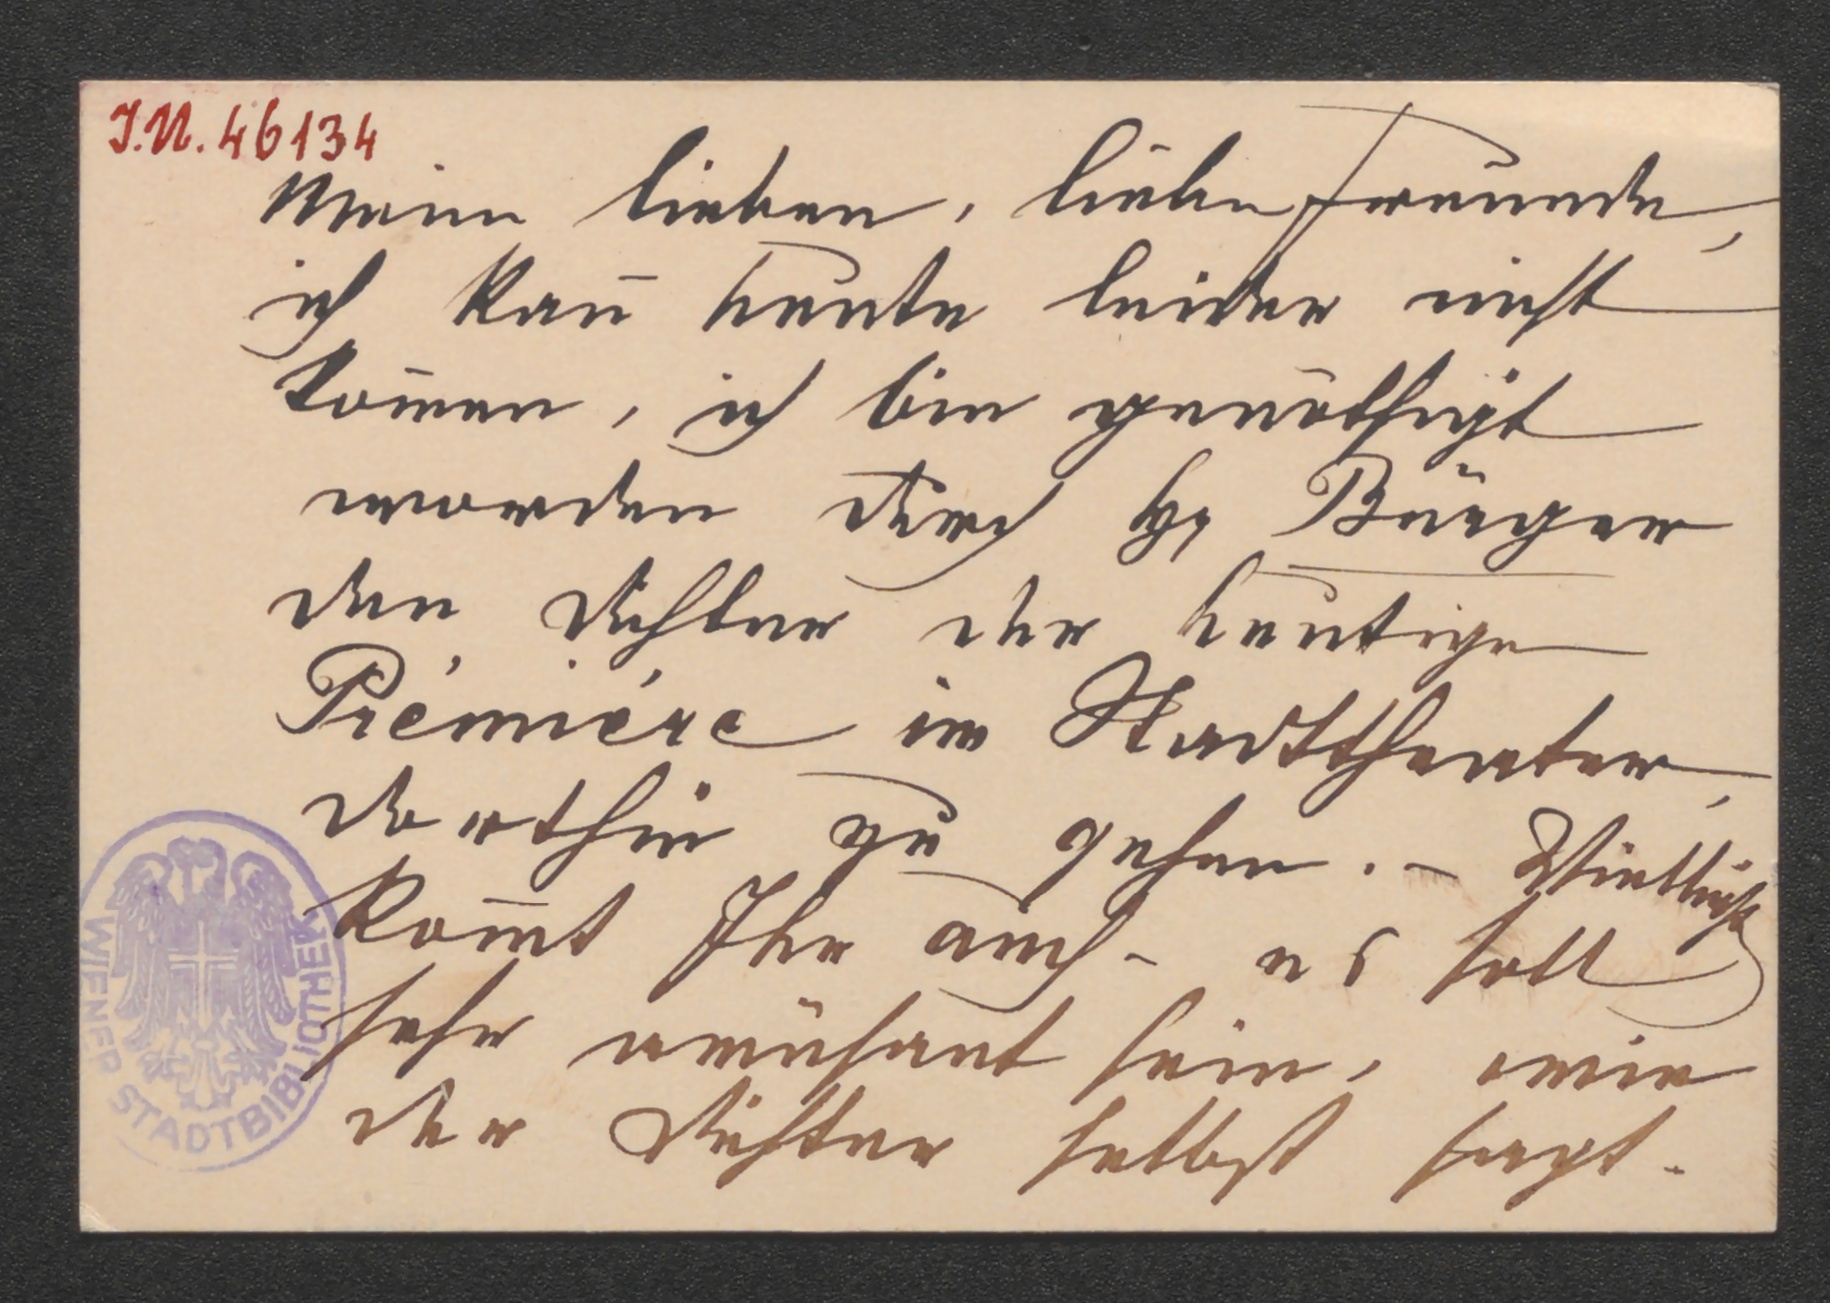 J.N. 46134
Meine lieben, lieben Freunde,
ich kan̄ heute leider nicht
kom̄en, ich bin genöthigt
worden durch Hr Bürger
den Dichter der heutigen
Prémiére im Stadttheater,
dorthin zu gehen. – Vielleicht
kom̄t Ihr auch – es soll
sehr amüsant sein, wie
der Dichter selbst sagt.
WIENER STADTBIBLIOTHEK